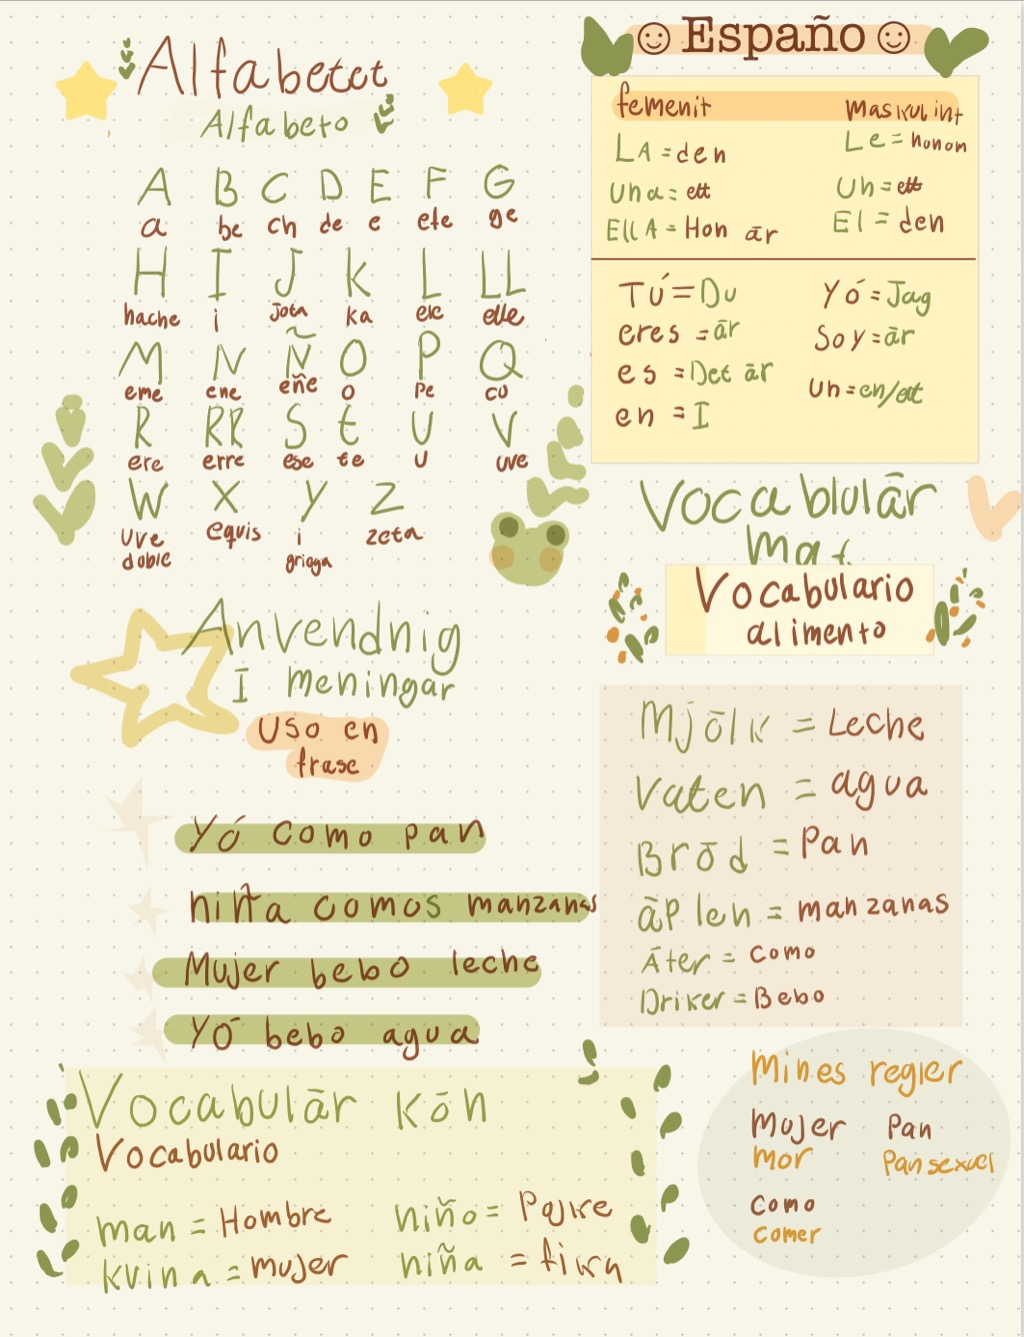 Alfabetet
Alfabeto
A B C D E F G
a be ch de e efe ge
H I J K L LL
hache i jota ka ele elle
M N Ñ O P Q
eme ene eñe o pe cu
R RR S t U V
ere erre ese te u uve
W X Y Z
uve equis i zeta
doble griega
Anvendnig
I meningar
Uso en
frase
Yó como pan
niña comos manzanas
Mujer bebo leche
Yó bebo agua
Vocabulār kōn
Vocabulario
man = Hombre
kvina = mujer
niño = Pojke
niña =
☺ Español ☺
femenit maskulint
LA = den Le = honom
Una = ett Un = ett
EllA = Hon ār El = den
Tú = Du Yó = Jag
eres = ār Soy = ār
es = Det ār Un = en/ett
en = I
Vocablulār
mat
Vocabulario
alimento
Mjōlk = Leche
Vaten = agua
Brōd = Pan
āplen = manzanas
Āter = como
Driker = Bebo
Mines regler
Mujer Pan
mor Pansexuel
como
comer